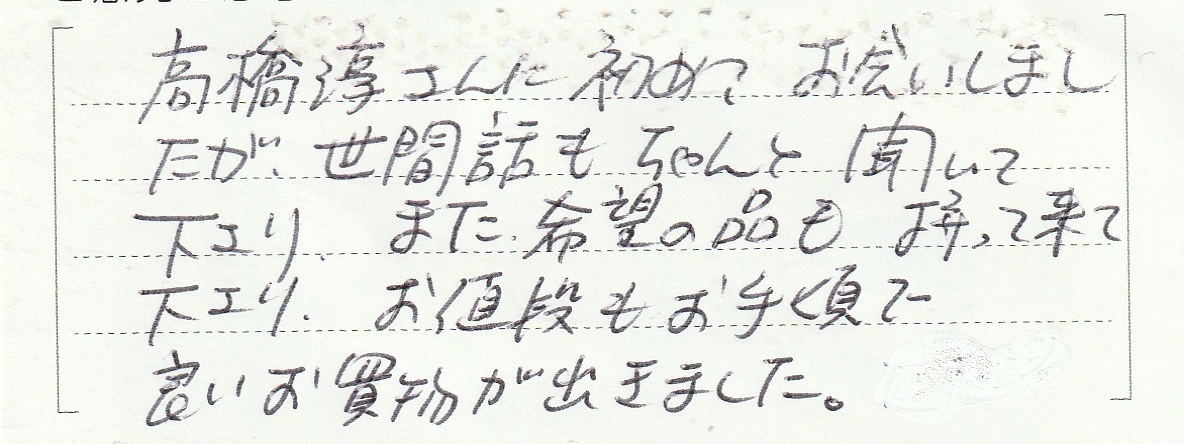 高橋淳さんに初めて お会いしまし
たが、世間話も ちゃんと 聞いて
下さり、また、希望の品も 持って来て
下さり、お値段もお手頃で
良いお買物が出きました。